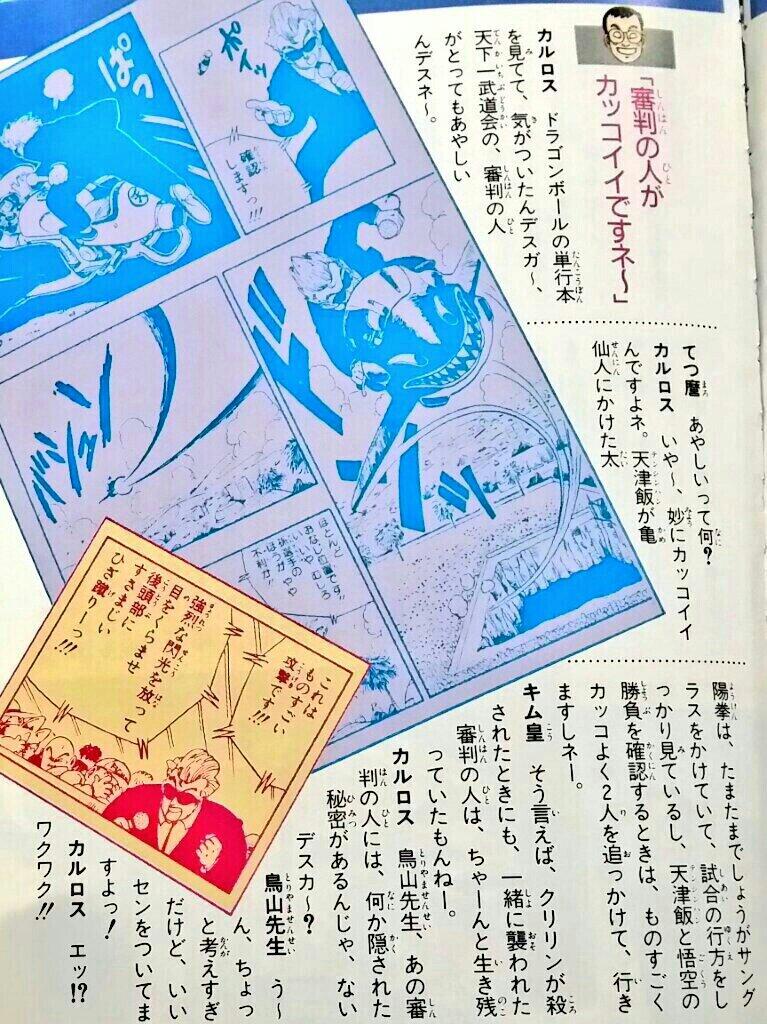 「審判の人が
カッコイイですネ～」
カルロス　ドラゴンボールの単行本
を見てて、気がついたんデスガ～、
天下一武道会の、審判の人
がとってもあやしい
んデスネ～。
てつ麿　あやしいって何？
カルロス　いや～、妙にカッコイイ
んですよネ。天津飯が亀
仙人にかけた太
陽拳は、たまたまでしょうがサング
ラスをかけていて、試合の行方をし
っかり見ているし、天津飯と悟空の
勝負を確認するときは、ものすごく
カッコよく2人を追っかけて、行き
ますしネー。
キム皇　そう言えば、クリリンが殺
されたときにも、一緒に襲われた
審判の人は、ちゃーんと生き残
っていたもんねー。
カルロス　鳥山先生、あの審
判の人には、何か隠された
秘密があるんじゃ、ない
デスカ～？
鳥山先生　う～
ん、ちょっ
と考えすぎ
だけど、いい
センをついてま
すよっ！
カルロス　エッ!?
ワクワク!!
ポイッ
確認
しますっ!!!
ぱっ
ドドドッ
ベシュンッ
ほとんど
おなじ位置です
いいや　むしろ
孫選手の
ほうが　やや
不利か!!
これは
ものすごい
攻撃です!!!
強烈な閃光を放って
目をくらませ
後頭部に
すさまじい
ひざ蹴りーっ!!!